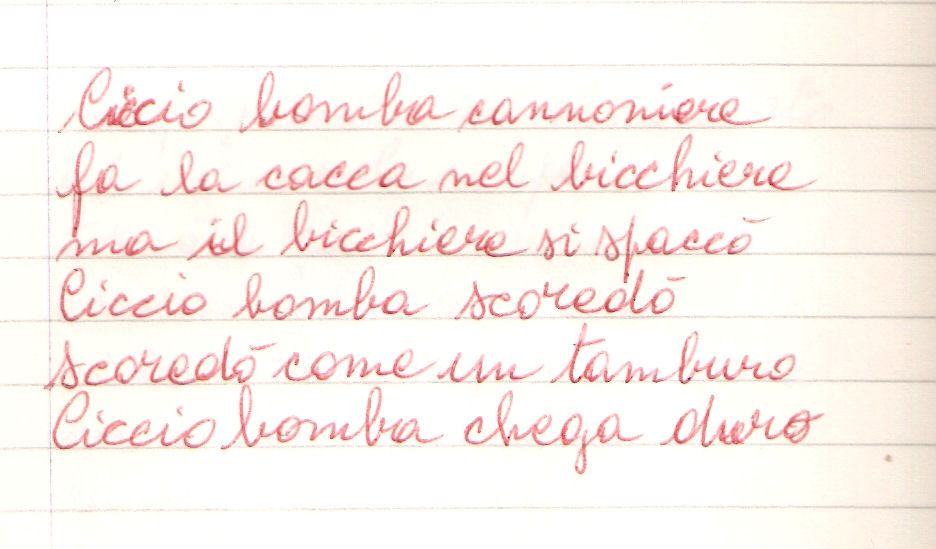 Ciccio bomba cannoniere
fa la cacca nel bicchiere
ma il bicchiere si spaccò
Ciccio bomba scoredò
scoredò come un tamburo
Ciccio bomba chega duro